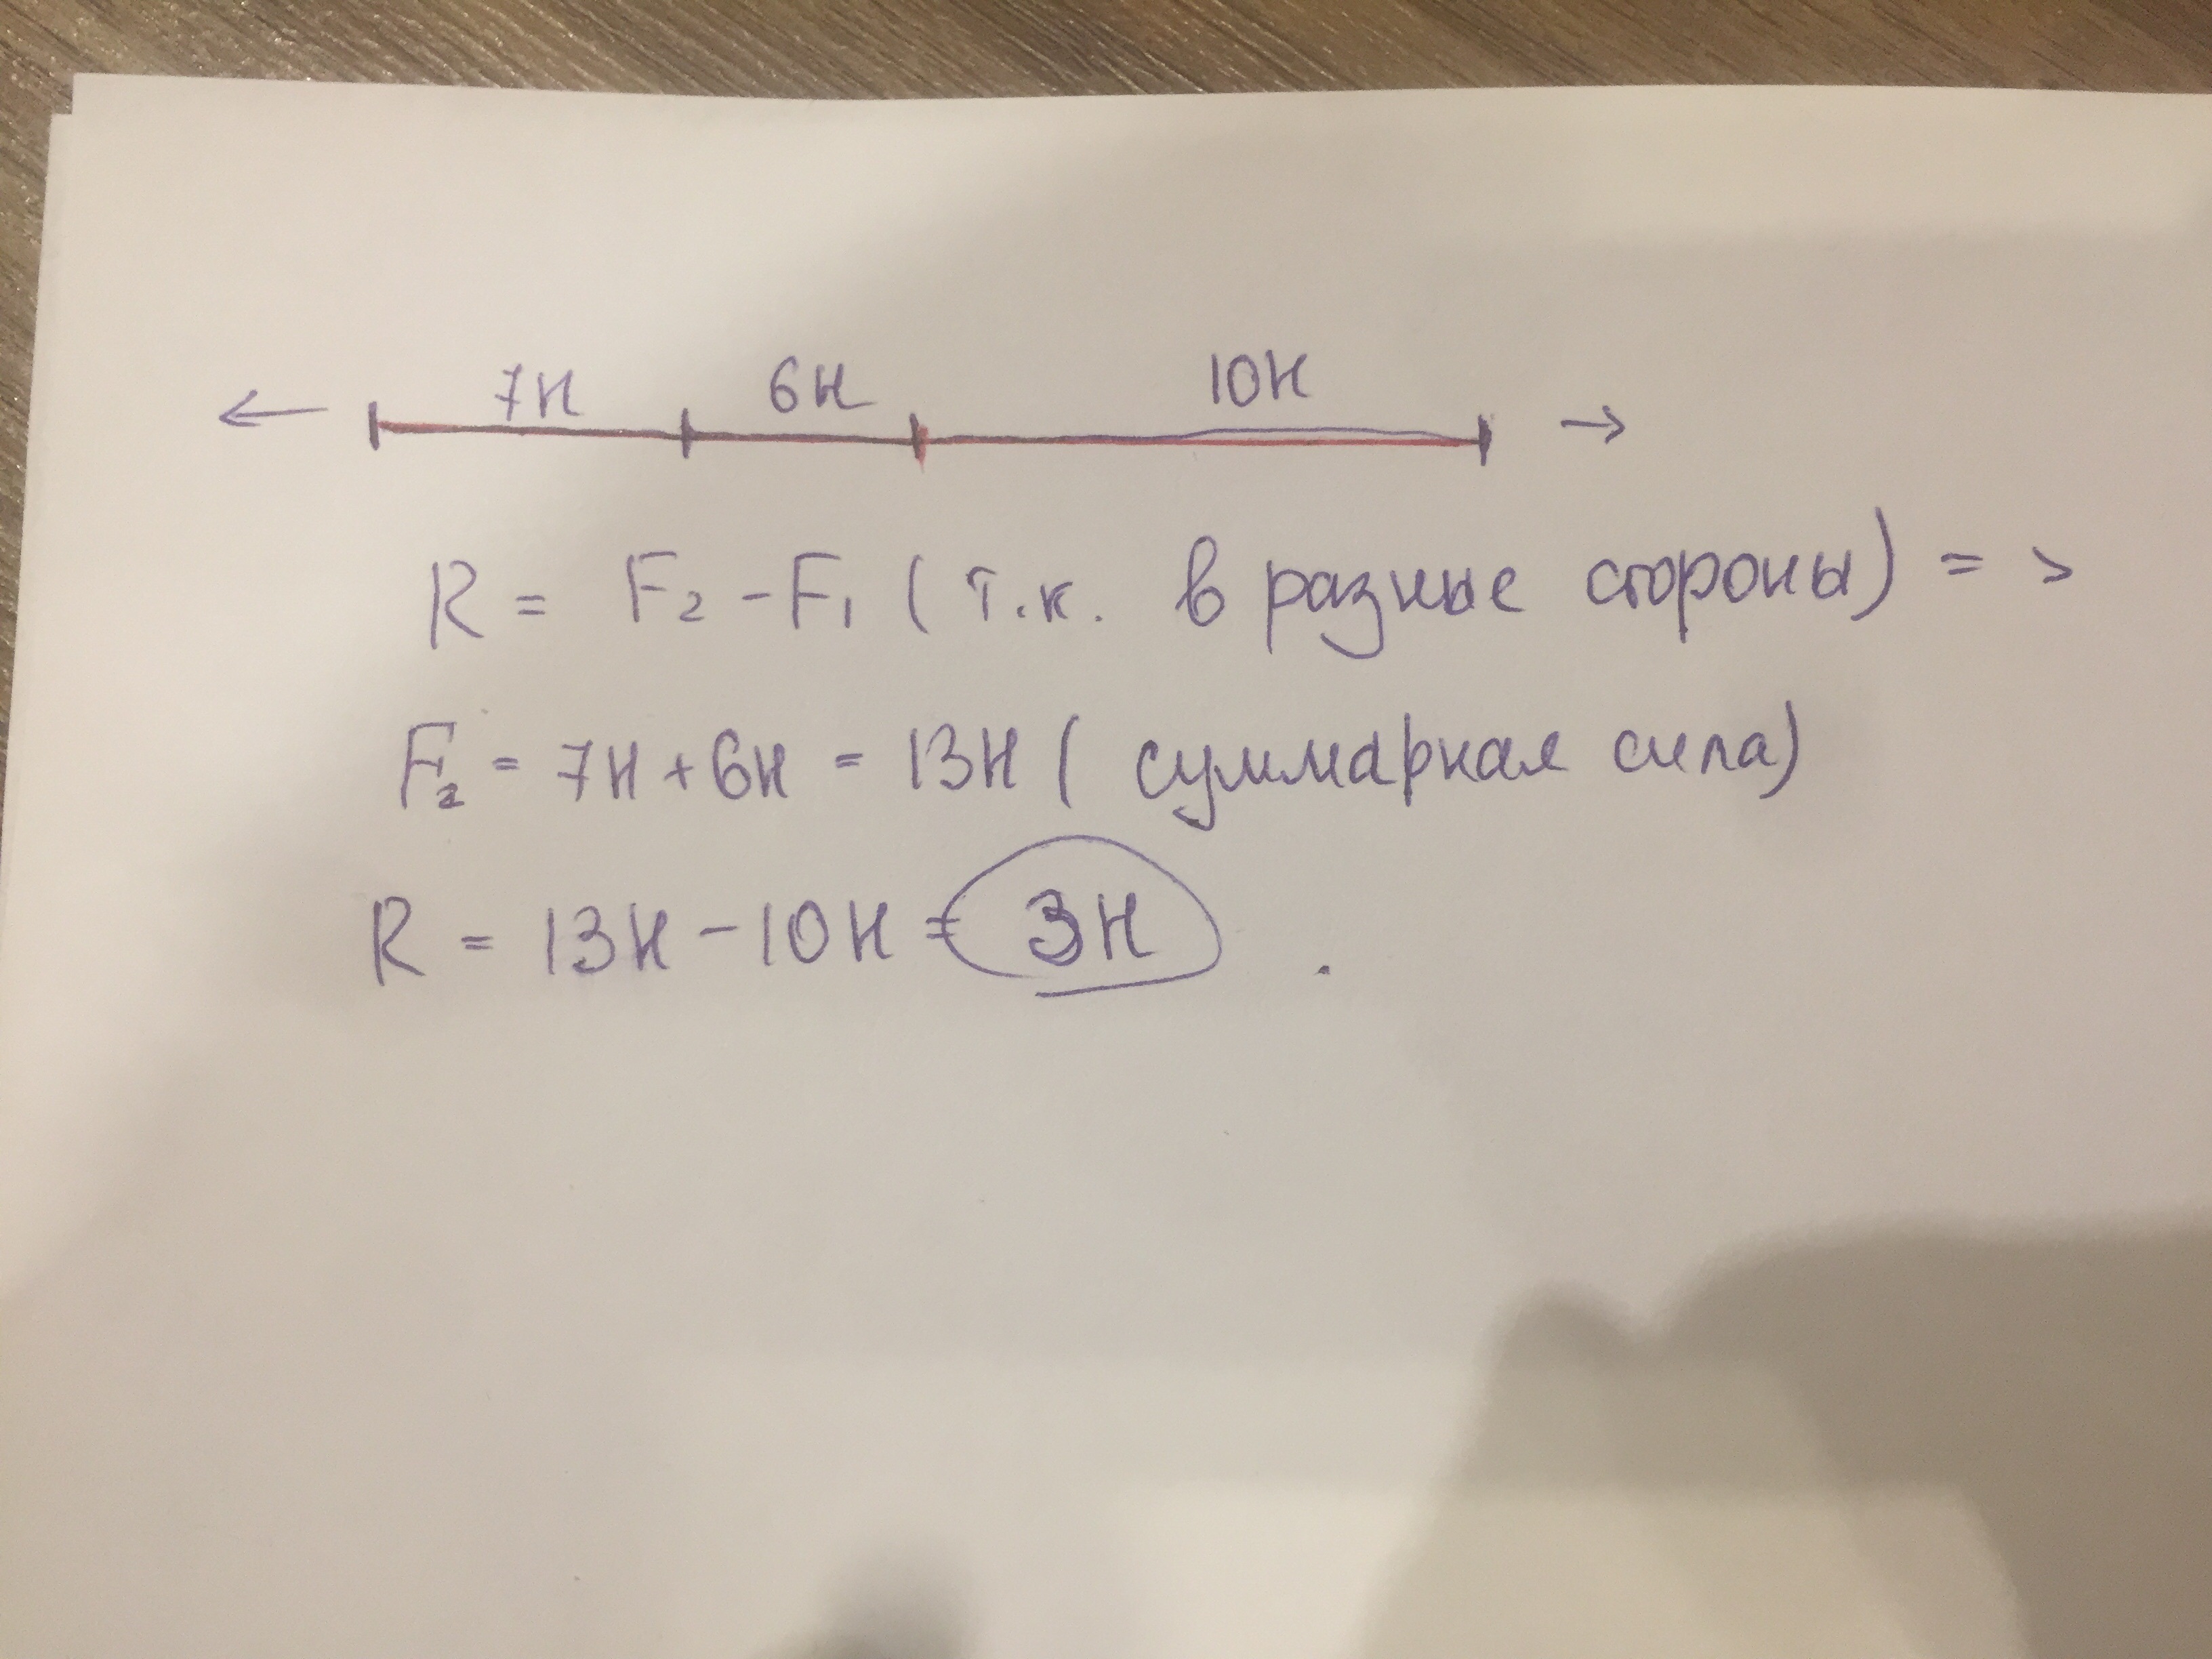 ← 7Н 6Н 10Н →
R = F₂ - F₁ (т.к. в разные стороны) = >
F₂ = 7Н + 6Н = 13Н ( суммарная сила)
R = 13Н - 10Н = 3Н .